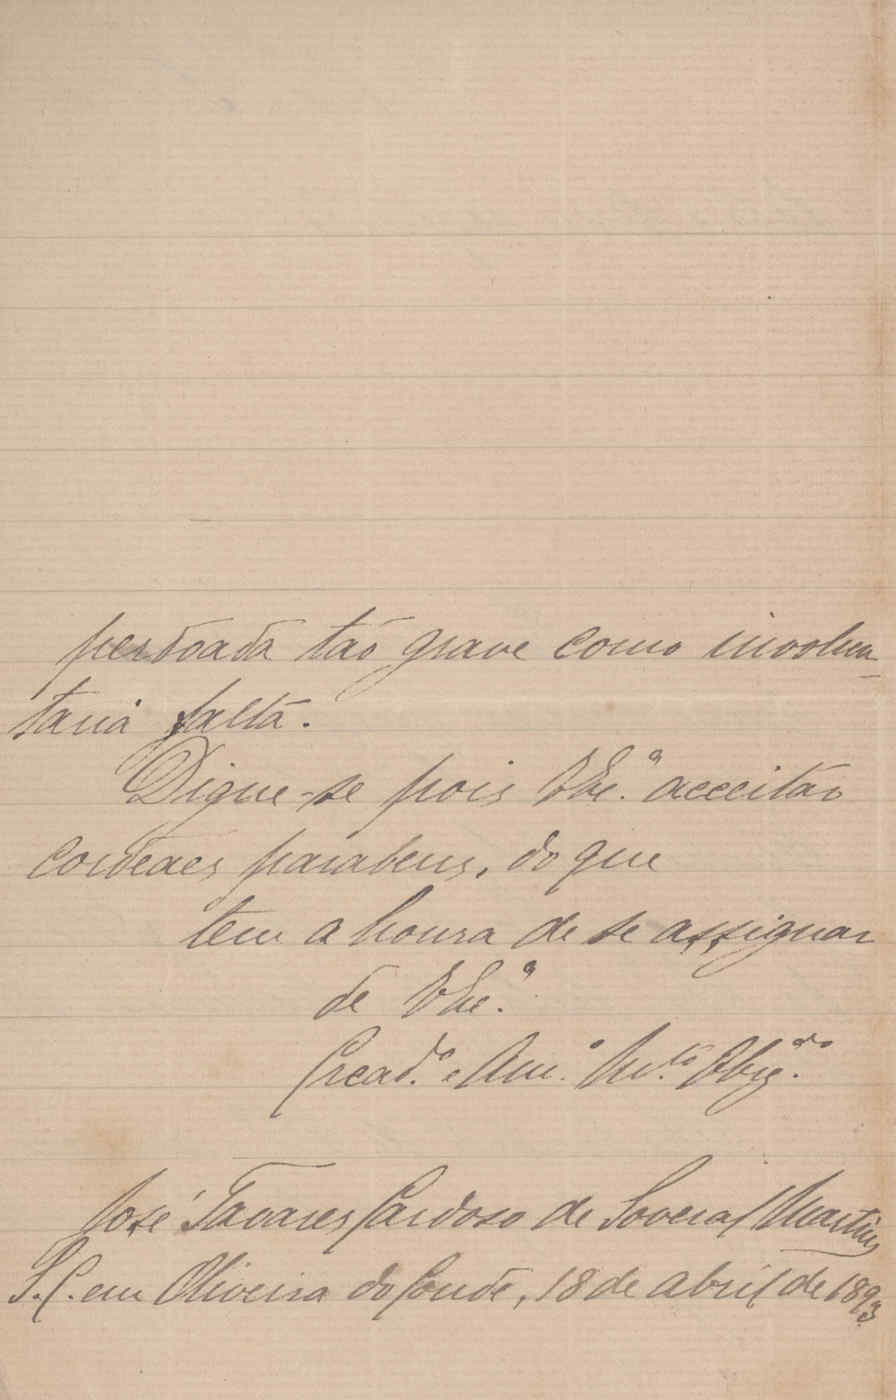 perdoada tão grave como involun-
taria falta.
Digne-se pois V Ex.ª acceitar
cordeaes parabens, do que
tem a honra de se assignar
de V Ex.ª
Cread.º e Am.º M.to Obrg.do
José Tavares Cardoso de Soveral Martins
S. C. em Oliveira do Conde, 18 de abril de 1893